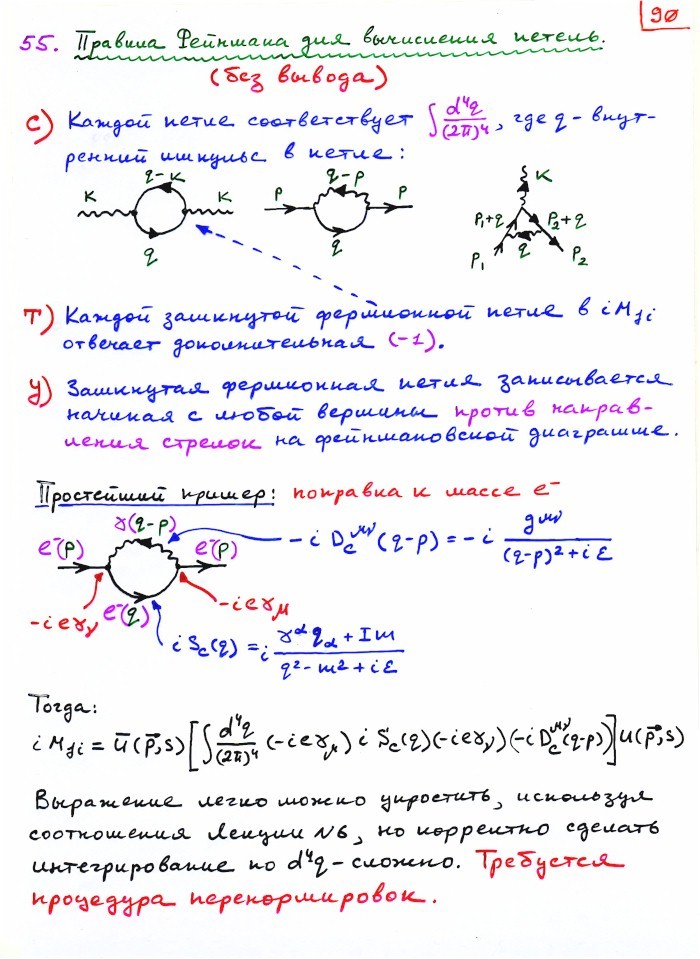 90
55. Правила Фейнмана для вычисления петель.
(без вывода)
С) Каждой петле соответствует ∫ d⁴q/(2π)⁴, где q - внут-
ренний импульс в петле:
q-k
k k
q
q-p
p p
q
k
p₁+q p₂+q
q
p₁ p₂
Т) Каждой замкнутой фермионной петле в iM_fi
отвечает дополнительная (-1).
У) Замкнутая фермионная петля записывается
начиная с любой вершины против направ-
ления стрелок на фейнмановской диаграмме.
Простейший пример: поправка к массе e⁻
γ(q-p)
e⁻(p) e⁻(p)
e⁻(q)
-ieγ_ν
-ieγ_μ
-i D_c^μν (q-p) = -i g^μν/((q-p)²+iε)
i S_c(q) = i (γ^α q_α + Im)/(q²-m²+iε)
Тогда:
i M_fi = ū(p⃗,s) [∫ d⁴q/(2π)⁴ (-ieγ_μ) i S_c(q) (-ieγ_ν) (-i D_c^μν(q-p))] u(p⃗,s)
Выражение легко можно упростить, используя
соотношения Лекции №6, но корректно сделать
интегрирование по d⁴q - сложно. Требуется
процедура перенормировок.